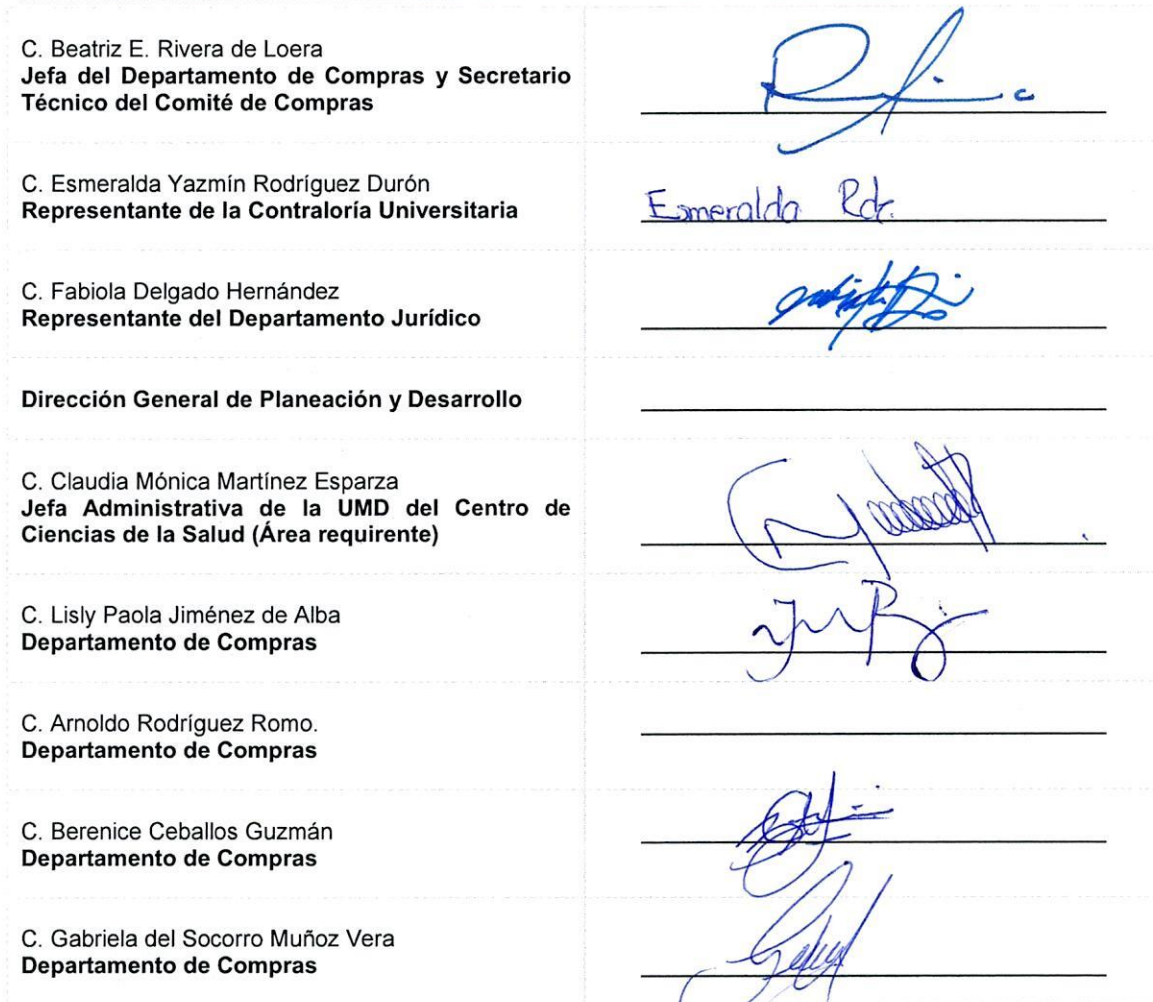 C. Beatriz E. Rivera de Loera
Jefa del Departamento de Compras y Secretario
Técnico del Comité de Compras
C. Esmeralda Yazmín Rodríguez Durón
Representante de la Contraloría Universitaria
Esmeralda Rdr.
C. Fabiola Delgado Hernández
Representante del Departamento Jurídico
Dirección General de Planeación y Desarrollo
C. Claudia Mónica Martínez Esparza
Jefa Administrativa de la UMD del Centro de
Ciencias de la Salud (Área requirente)
C. Lisly Paola Jiménez de Alba
Departamento de Compras
C. Arnoldo Rodríguez Romo.
Departamento de Compras
C. Berenice Ceballos Guzmán
Departamento de Compras
C. Gabriela del Socorro Muñoz Vera
Departamento de Compras